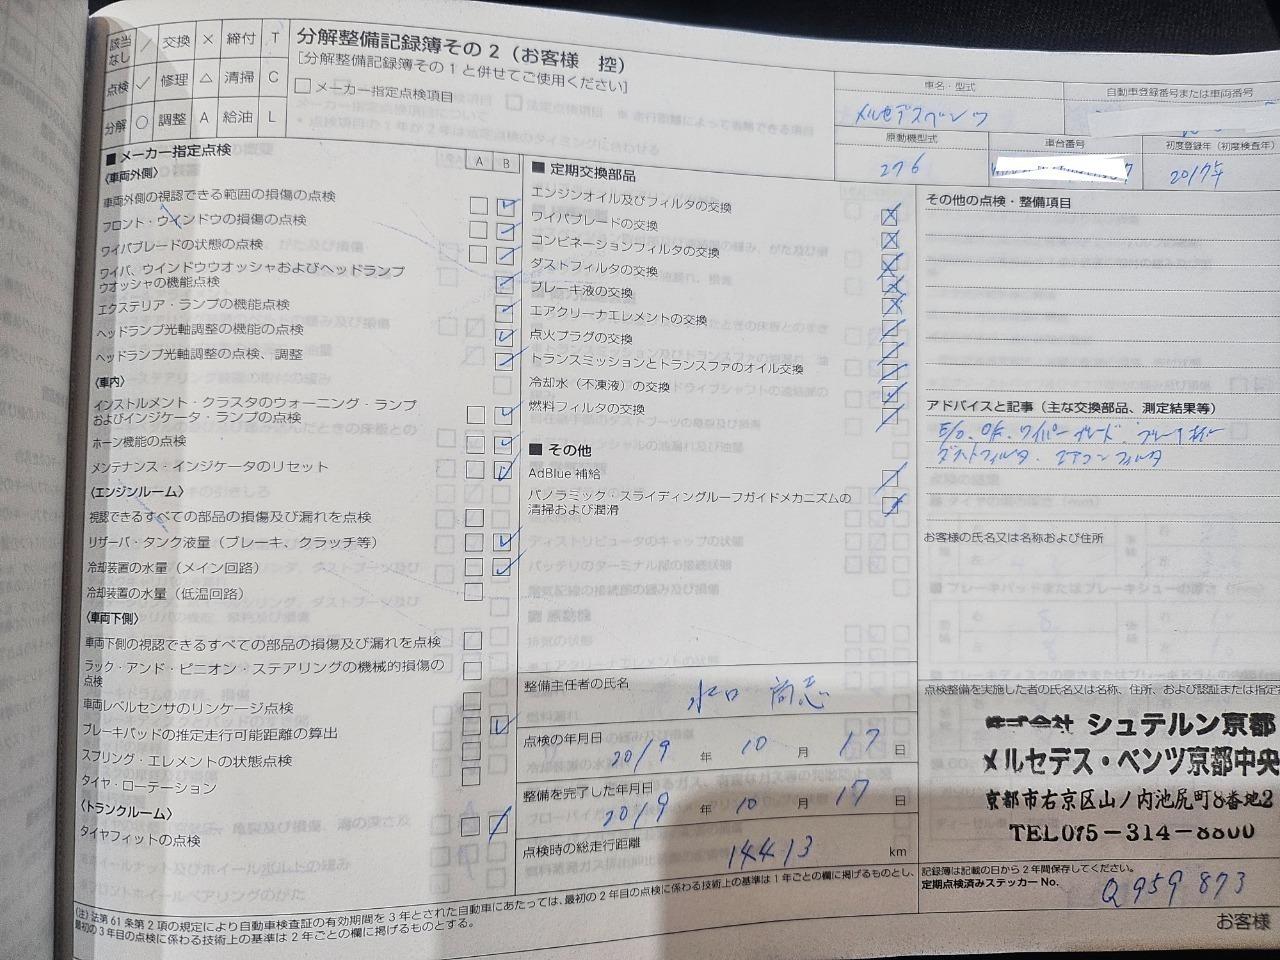 該当なし ／ 交換 × 締付 T
点検 ✓ 修理 △ 清掃 C
分解 ○ 調整 A 給油 L
分解整備記録簿その2（お客様 控）
［分解整備記録簿その1と併せてご使用ください］
□ メーカー指定点検項目
車名・型式
メルセデスベンツ
自動車登録番号または車両番号
原動機型式
276
車台番号
初度登録年（初度検査年）
2017年
■ メーカー指定点検
A B
〈車両外側〉
車両外側の視認できる範囲の損傷の点検
フロント・ウインドウの損傷の点検
ワイパブレードの状態の点検
ワイパ、ウインドウウオッシャおよびヘッドランプ
ウオッシャの機能点検
エクステリア・ランプの機能点検
ヘッドランプ光軸調整の機能の点検
ヘッドランプ光軸調整の点検、調整
〈車内〉
インストルメント・クラスタのウォーニング・ランプ
およびインジケータ・ランプの点検
ホーン機能の点検
メンテナンス・インジケータのリセット
〈エンジンルーム〉
視認できるすべての部品の損傷及び漏れを点検
リザーバ・タンク液量（ブレーキ、クラッチ等）
冷却装置の水量（メイン回路）
冷却装置の水量（低温回路）
〈車両下側〉
車両下側の視認できるすべての部品の損傷及び漏れを点検
ラック・アンド・ピニオン・ステアリングの機械的損傷の
点検
車両レベルセンサのリンケージ点検
ブレーキパッドの推定走行可能距離の算出
スプリング・エレメントの状態点検
タイヤ・ローテーション
〈トランクルーム〉
タイヤフィットの点検
■ 定期交換部品
エンジンオイル及びフィルタの交換
ワイパブレードの交換
コンビネーションフィルタの交換
ダストフィルタの交換
ブレーキ液の交換
エアクリーナエレメントの交換
点火プラグの交換
トランスミッションとトランスファのオイル交換
冷却水（不凍液）の交換
燃料フィルタの交換
■ その他
AdBlue 補給
パノラミック・スライディングルーフガイドメカニズムの
清掃および潤滑
整備主任者の氏名
水口 尚志
点検の年月日
2019 年 10 月 17 日
整備を完了した年月日
2019 年 10 月 17 日
点検時の総走行距離
14413 km
その他の点検・整備項目
アドバイスと記事（主な交換部品、測定結果等）
E/O. O/F. ワイパーブレード. ブレーキ
ダストフィルタ. エアコンフィルタ
お客様の氏名又は名称および住所
点検整備を実施した者の氏名又は名称、住所、および認証または指定
株式会社 シュテルン京都
メルセデス・ベンツ京都中央
京都市右京区山ノ内池尻町8番地2
TEL075-314-8800
記録簿は記載の日から2年間保存してください。
定期点検済みステッカーNo.
Q959873
（注）法第61条第2項の規定により自動車検査証の有効期間を3年とされた自動車にあたっては、最初の2年目の点検に係わる技術上の基準は1年ごとの欄に掲げるものとし、
最初の3年目の点検に係わる技術上の基準は2年ごとの欄に掲げるものとする。
お客様